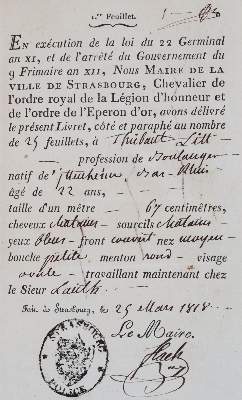 1.er Feuillet.
En exécution de la loi du 22 Germinal
an XI, et de l'arrêté du Gouvernement du
9 Frimaire an XII, Nous Maire de la
Ville de Strasbourg, Chevalier de
l'ordre royal de la Légion d'honneur et
de l'ordre de l'Eperon d'or, avons délivré
le présent Livret, côté et paraphé au nombre
de 25 feuillets, à Thiébaut
profession de Boulanger
natif de Bas-Rhin
âgé de 22 ans,
taille d'un mètre 67 centimètres,
cheveux chatains sourcils chatains
yeux bleus front couvert nez moyen
bouche petite menton rond visage
ovale travaillant maintenant chez
le Sieur
Fait à Strasbourg, le 25 Mars 1818
Le Maire.
STRASBOURG
POLICE